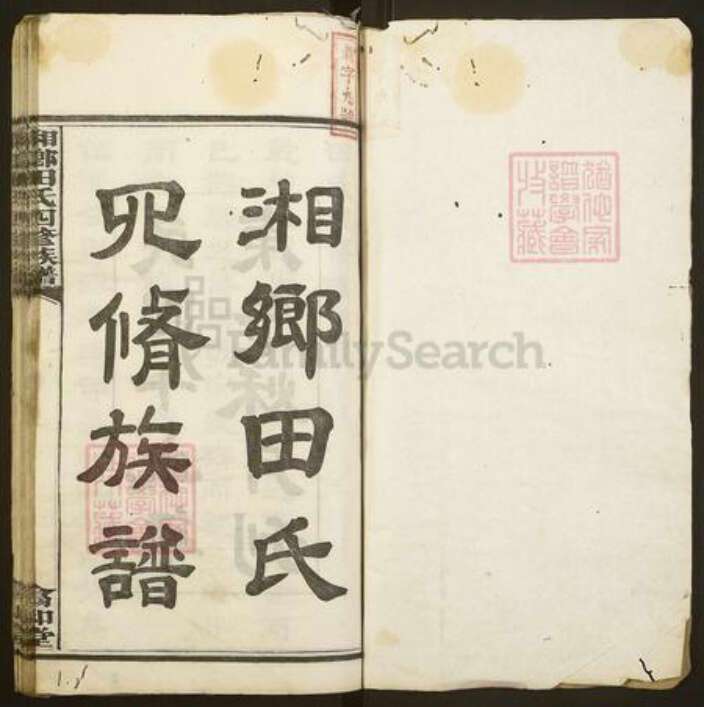 湘鄉田氏
四脩族譜
湘鄉田氏四修族譜
譜學會
收藏
FamilySearch